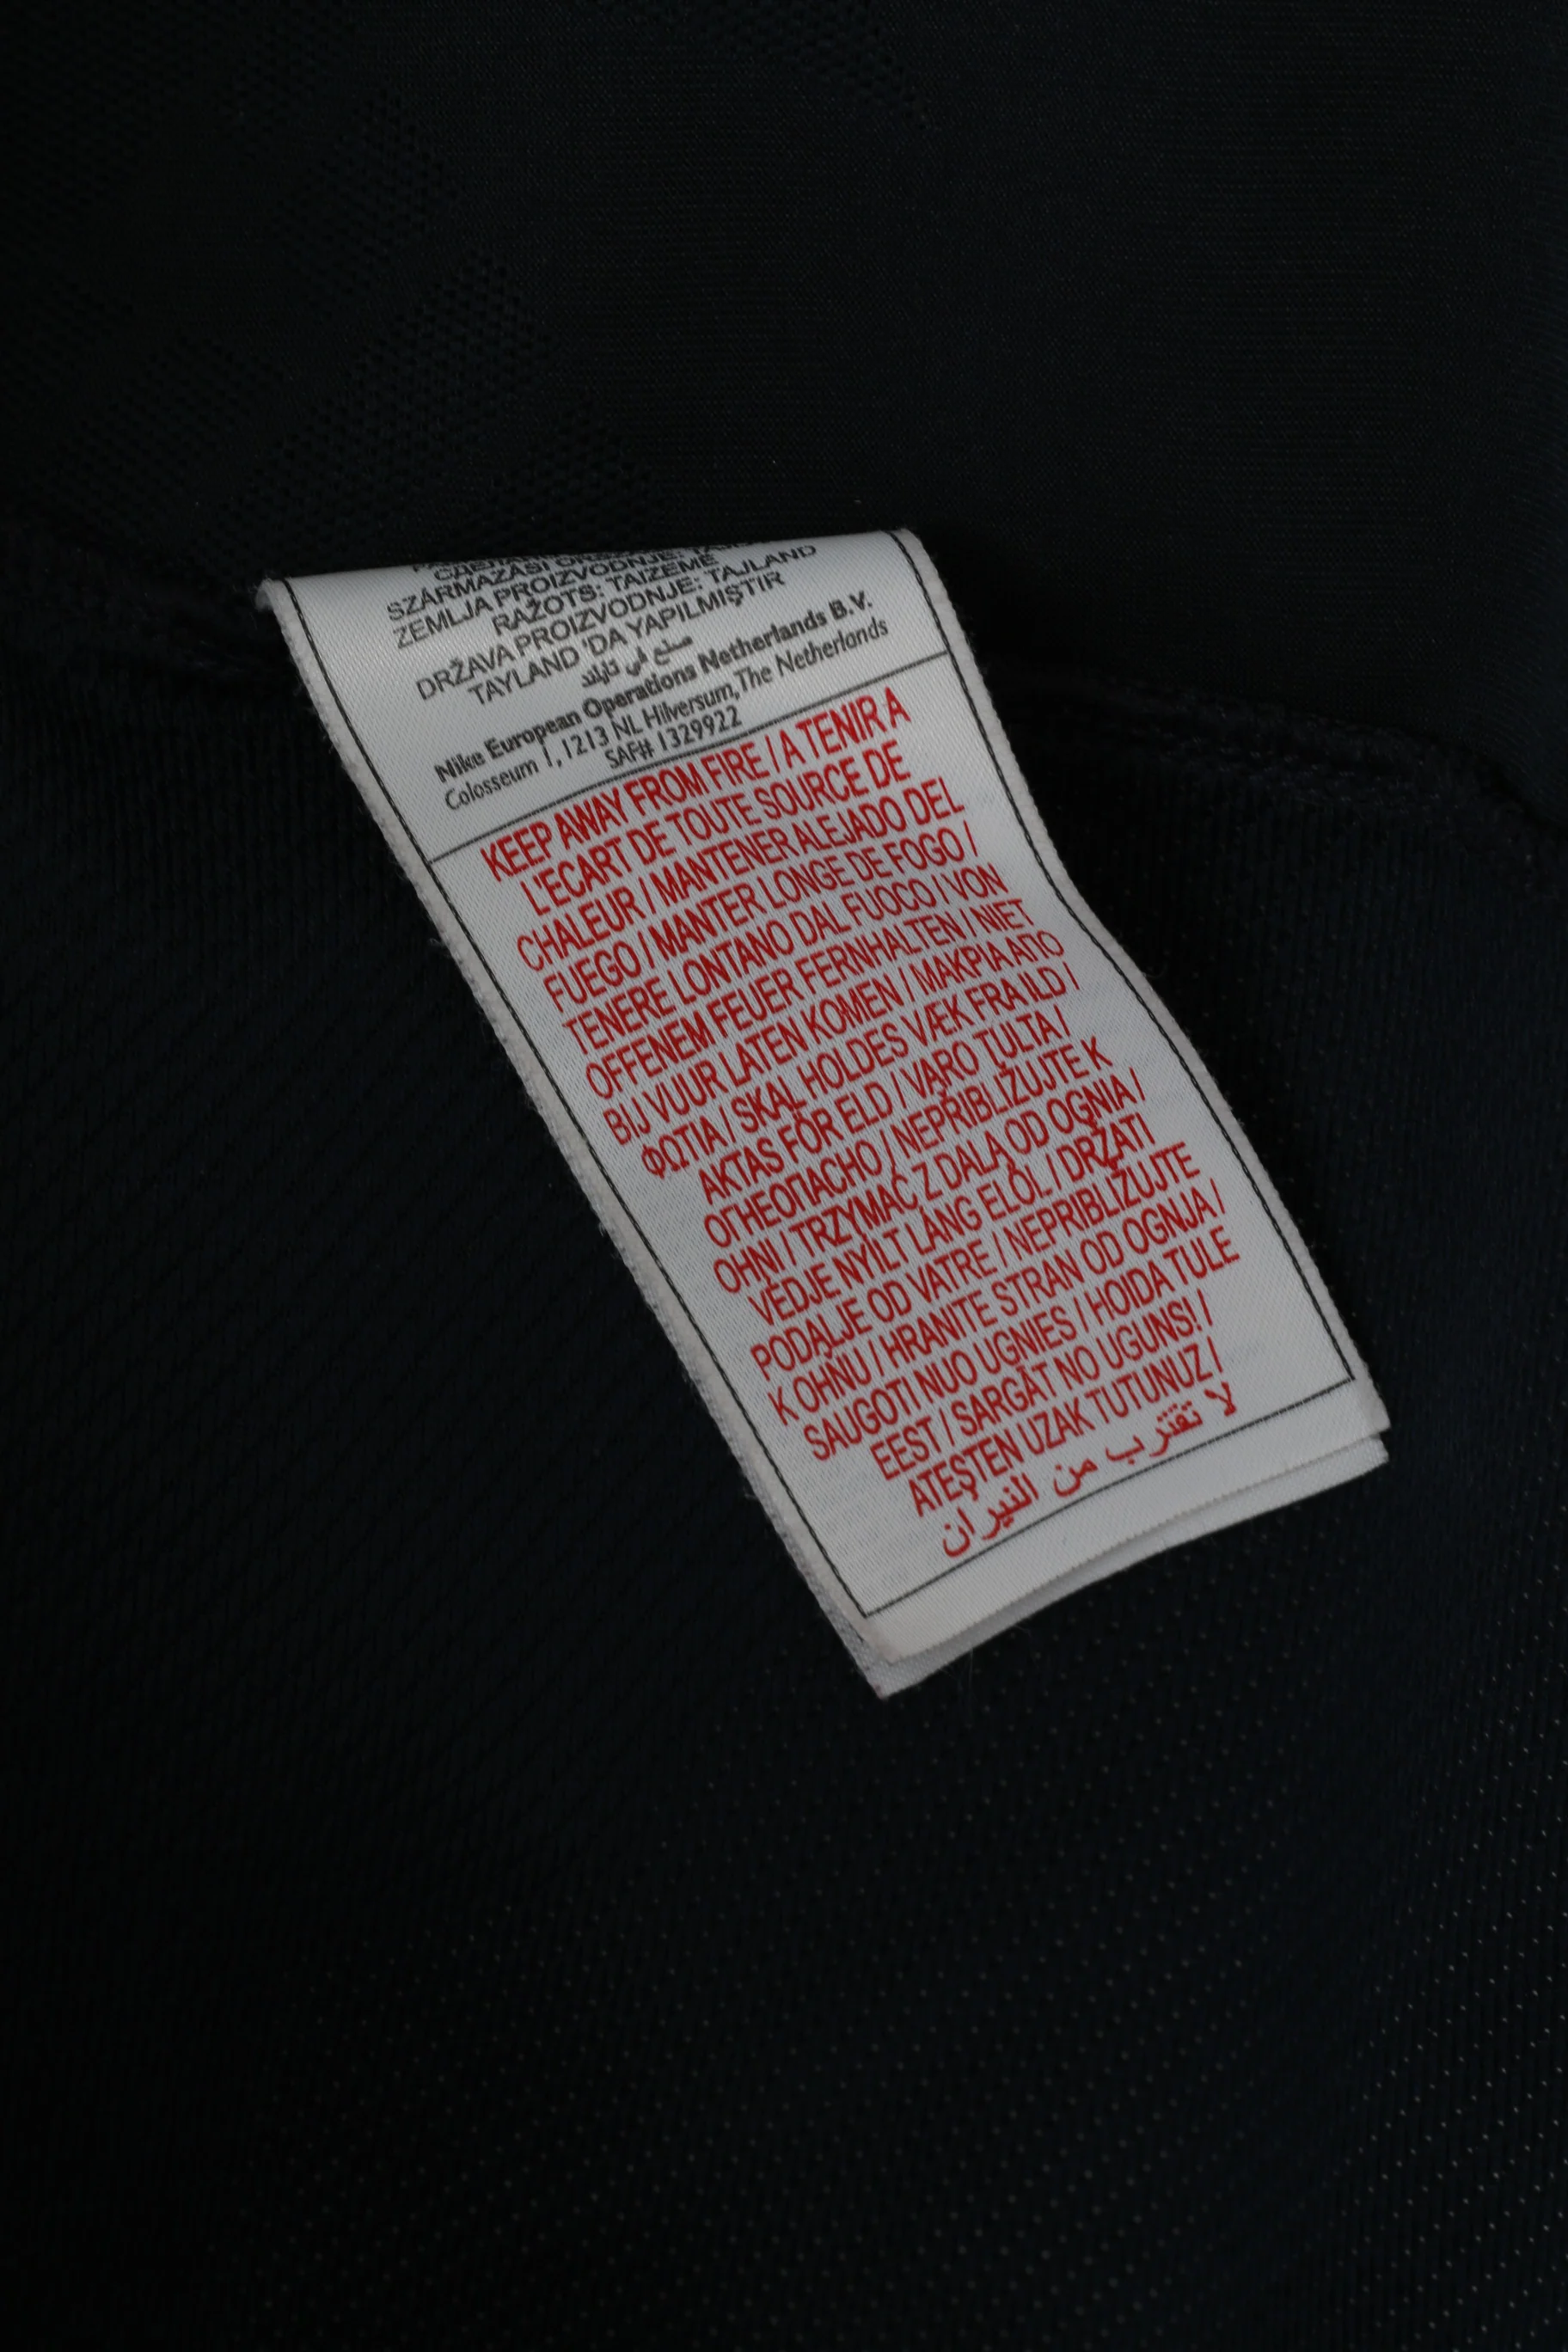 SZÁRMAZÁSI ORSZÁG:
ZEMLJA PROIZVODNJE: TAIZEME
RAŽOTS: TAIZEME
DRŽAVA PROIZVODNJE: TAJLAND
TAYLAND 'DA YAPILMIŞTIR
صنع في تايلند
Nike European Operations Netherlands B.V.
Colosseum 1, 1213 NL Hilversum,The Netherlands
SAF# 1329922
KEEP AWAY FROM FIRE / A TENIR A
L'ECART DE TOUTE SOURCE DE
CHALEUR / MANTENER ALEJADO DEL
FUEGO / MANTER LONGE DE FOGO /
TENERE LONTANO DAL FUOCO / VON
OFFENEM FEUER FERNHALTEN / NIET
BIJ VUUR LATEN KOMEN / ΜΑΚΡΙΑ ΑΠΟ
ΦΩΤΙΑ / SKAL HOLDES VÆK FRA ILD /
AKTAS FÖR ELD / VARO TULTA /
ОГНЕОПАСНО / NEPRIBLIŽUJTE K
OHNI / TRZYMAĆ Z DALA OD OGNIA /
VÉDJE NYÍLT LÁNG ELÖL / DRŽATI
PODALJE OD VATRE / NEPRIBLIŽUJTE
K OHŇU / HRANITE STRAN OD OGNJA /
SAUGOTI NUO UGNIES / HOIDA TULE
EEST / SARGĀT NO UGUNS! /
ATEŞTEN UZAK TUTUNUZ /
لا تقترب من النيران